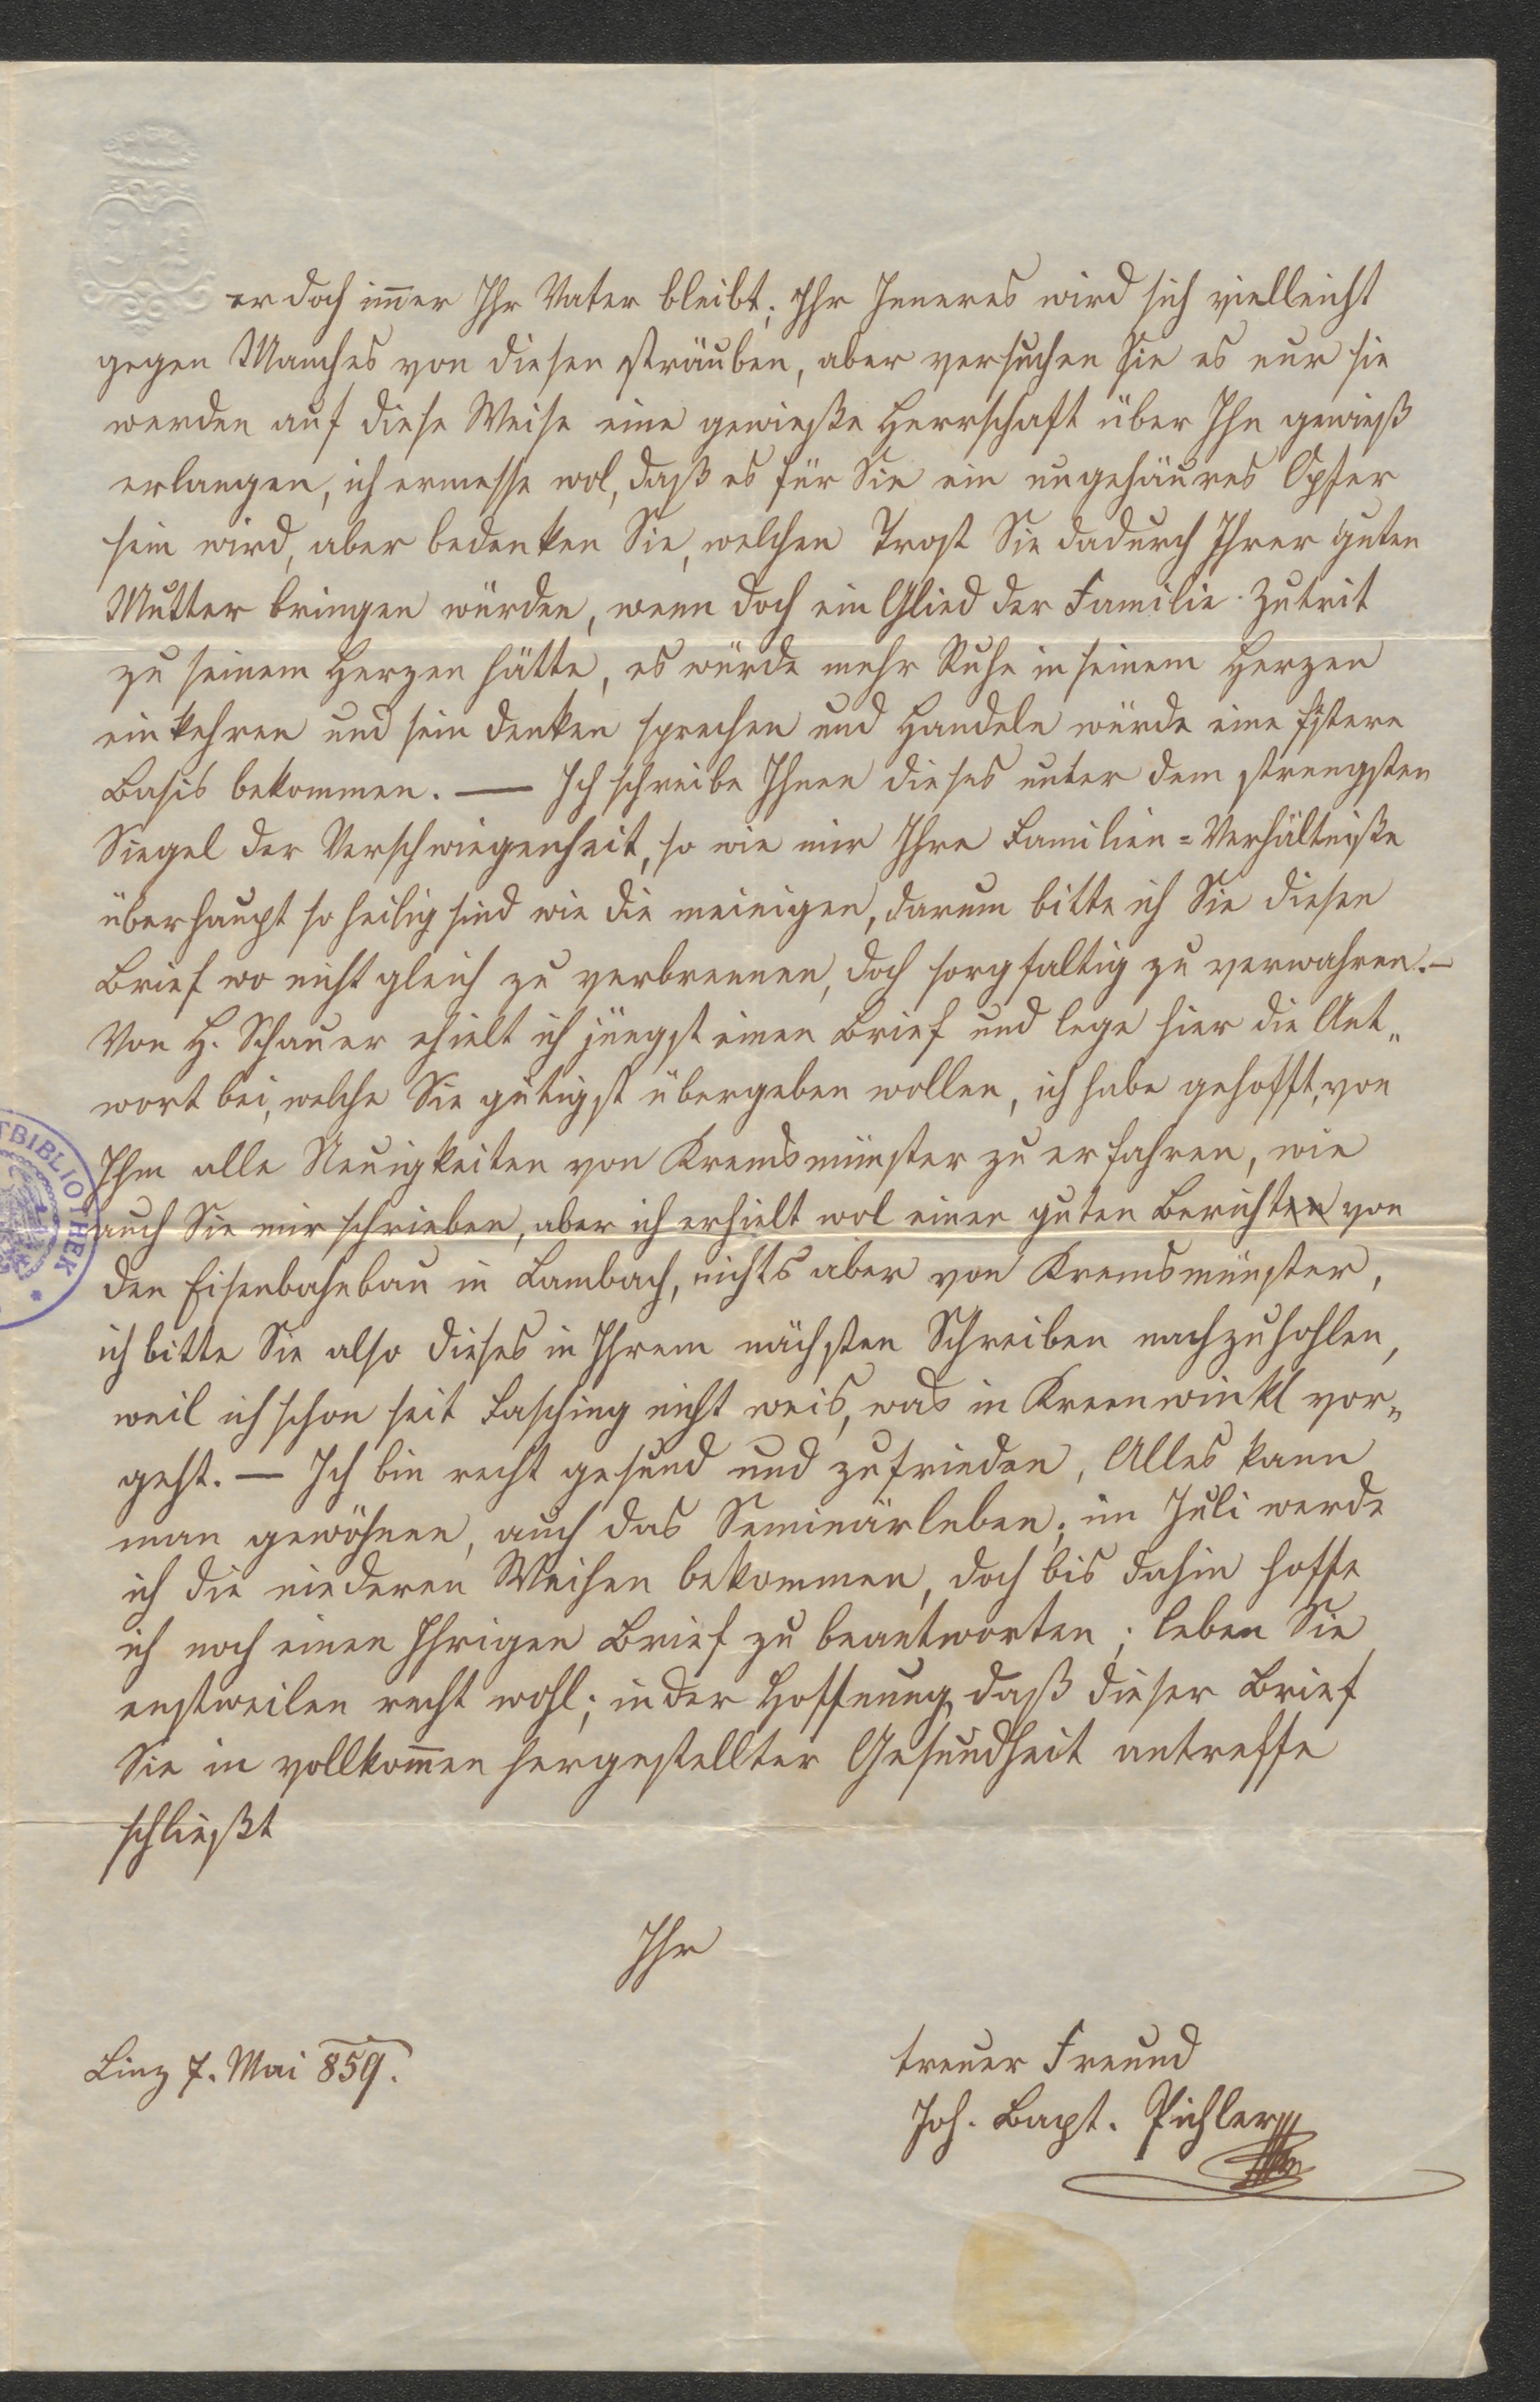 er doch im̅er Ihr Vater bleibt; Ihr Inneres wird sich vielleicht
gegen Manches von diesen sträuben, aber versuchen Sie es nur sie
werden auf diese Weise eine gewieße Herrschaft über Ihn gewieß
erlangen, ich ermesse wol, daß es für Sie ein ungehäures Opfer
sein wird, aber bedenken Sie, welchen Trost Sie dadurch Ihrer guten
Mutter bringen würden, wenn doch ein Glied der Familie Zutrit
zu seinem Herzen hätte, es würde mehr Ruhe in seinem Herzen
einkehren und sein denken sprechen und Handeln würde eine
Basis bekommen. — Ich schreibe Ihnen dieses unter dem strengsten
Siegel der Verschwiegenheit, so wie mir Ihre Familien=Verhältniße
überhaupt so heilig sind wie die meinigen, darum bitte ich Sie diesen
Brief wo nicht gleich zu verbrennen, doch sorgfaltig zu verwahren.—
Von H. Schauer ehielt ich jüngst einen Brief und lege hier die Ant„
wort bei, welche Sie gütigst übergeben wollen, ich habe gehofft, von
Ihm alle Neuigkeiten von Kremsmünster zu erfahren, wie
auch Sie mir schrieben, aber ich erhielt wol einen guten Berichten von
den Eisenbahnbau in Lambach, nichts aber von Kremsmünster,
ich bitte Sie also dieses in Ihrem nächsten Schreiben nachzuhohlen,
weil ich schon seit Fasching nicht weis, was in Kreenwinkl vor„
geht. — Ich bin recht gesund und zufrieden, Alles kann
man gewöhnen, auch das Seminärleben; im Juli werde
ich die niederen Weihen bekommen, doch bis dahin hoffe
ich noch einen Ihrigen Brief zu beantworten; leben Sie
enstweilen recht wohl; in der Hoffnung, daß dieser Brief
Sie in vollkom̅en hergestellter Gesundheit antreffe
schließt
Ihr
treuer Freund
Linz 7. Mai 859.
Joh. Bapt. Pichler
TBIBLIOTHEK